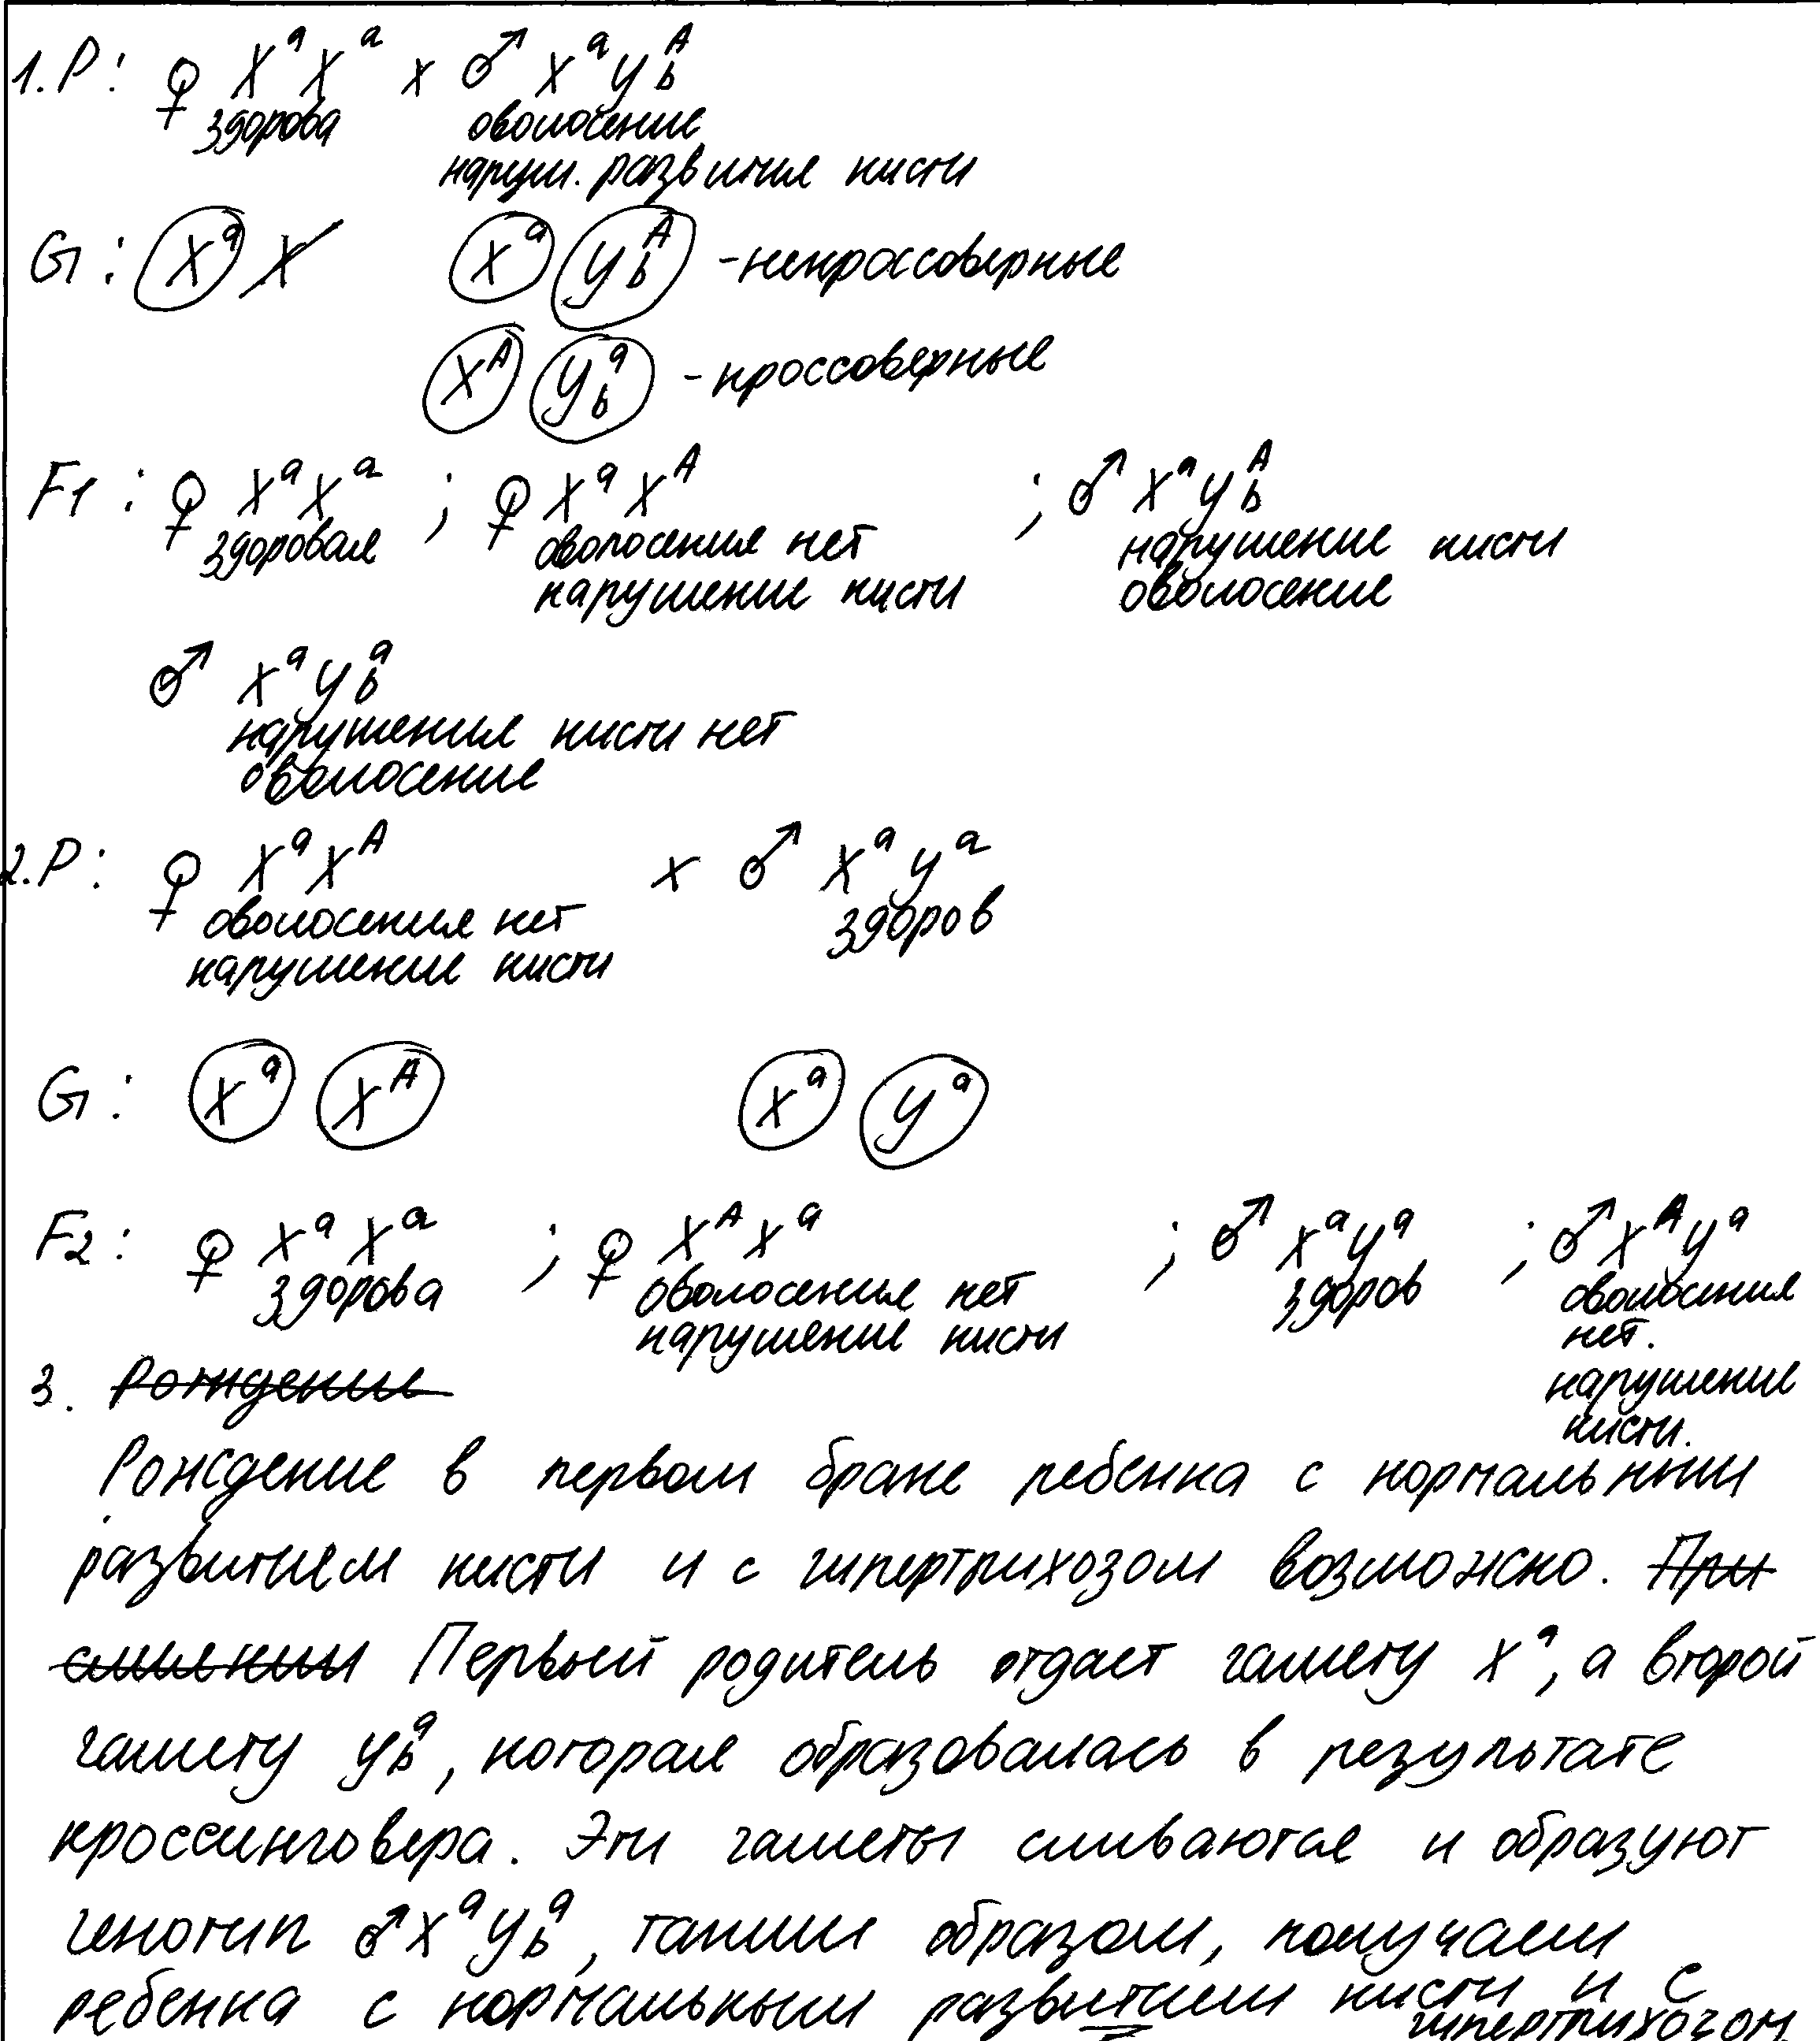 1. P: ♀ XᵃXᵃ x ♂ XᵃYᵇᴬ
здорова оволосение
наруш. развития кисти
G: Xᵃ X Xᵃ Yᵇᴬ - некроссоверные
Xᴬ Yᵇᵃ - кроссоверные
F1: ♀ XᵃXᵃ ; ♀ XᵃXᴬ ; ♂ XᵃYᵇᴬ
здоровая оволосения нет нарушение кисти
нарушение кисти оволосение
♂ XᵃYᵇᵃ
нарушения кисти нет
оволосение
2. P: ♀ XᵃXᴬ x ♂ XᵃYᵃ
оволосения нет здоров
нарушение кисти
G: Xᵃ Xᴬ Xᵃ Yᵃ
F2: ♀ XᵃXᵃ ; ♀ XᴬXᵃ ; ♂ XᵃYᵃ ; ♂ XᴬYᵃ
здорова оволосения нет здоров оволосения
нарушение кисти нет.
3. Рождение нарушение
кисти.
Рождение в первом браке ребенка с нормальным
развитием кисти и с гипертрихозом возможно. При
слиянии Первый родитель отдает гамету Xᵃ, а второй
гамету Yᵇᵃ, которая образовалась в результате
кроссинговера. Эти гаметы сливаются и образуют
генотип ♂XᵃYᵇᵃ, таким образом, получаем
ребенка с нормальным развитием кисти и с
гипертрихозом.